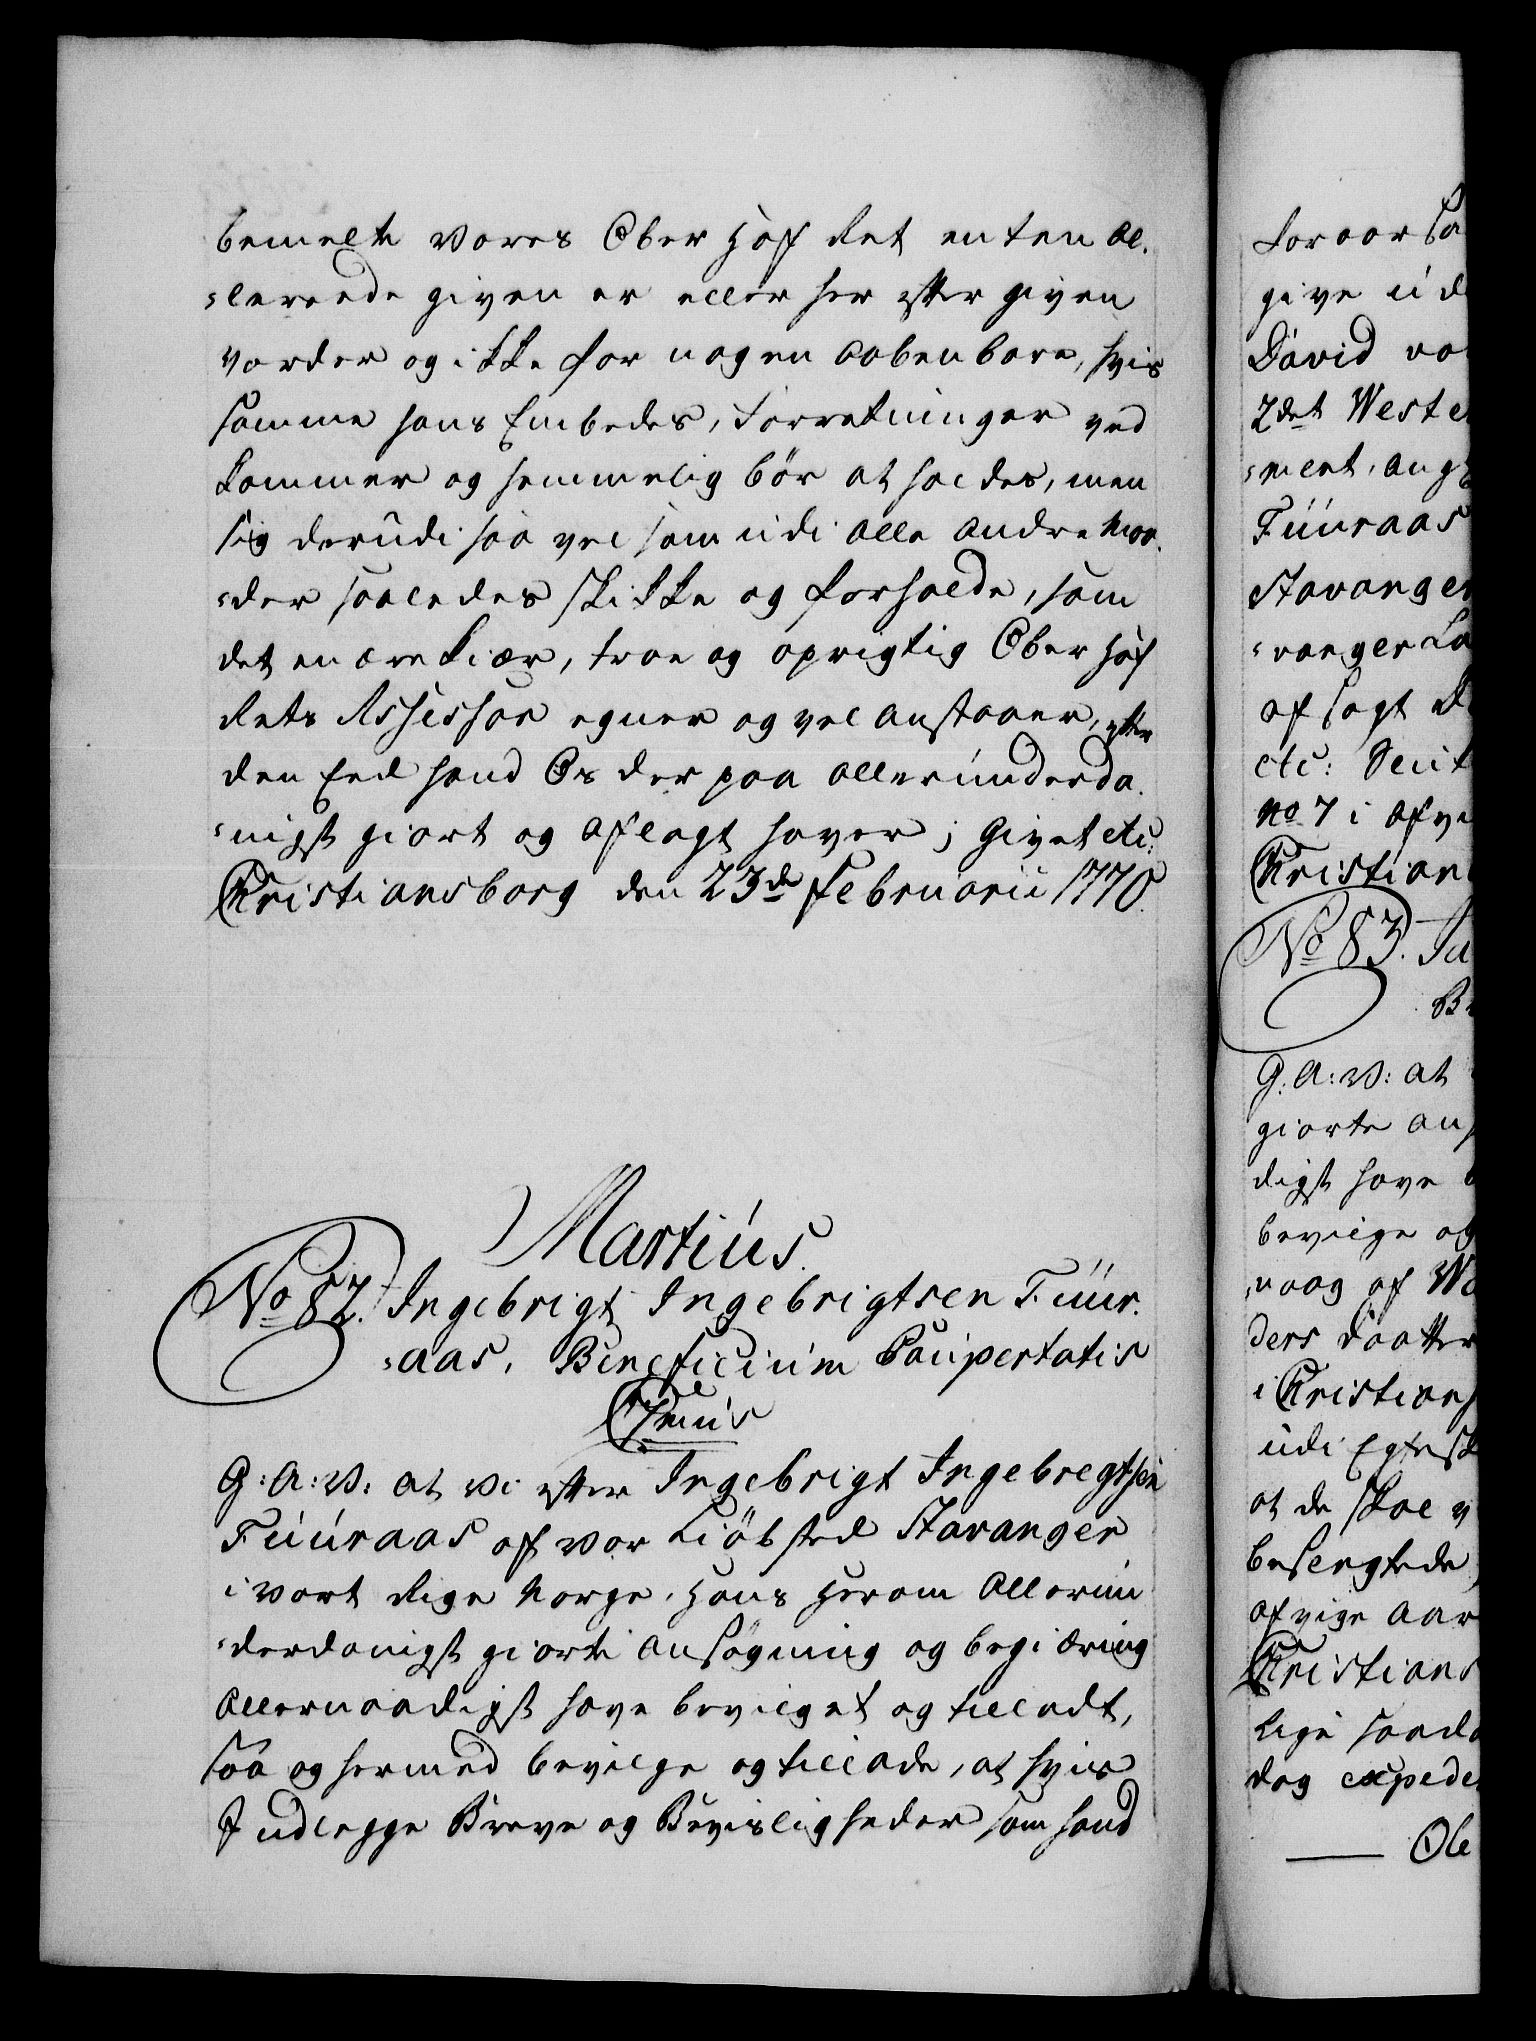 bemelte Vores Ober Hof Ret enten al-
=lereede given er eller her efter given
vorder og ikke for nogen aabenbare, hvis
samme hans Embedes, Forretninger ved
kommer og hemmelig bör at holdes, men
sig derudi saa vel som udi alle andre Maa-
=der saaledes skikke og forholde, som
det en ære kiær, troe og oprigtig Ober Hof
Rets Assessor egner og vel anstaaer, efter
den Eed hand Os der paa allerunderda-
=nigst giort og aflagt haver; Givet etc:
Christiansborg den 23de Februarii 1770.
Martius.
No 82. Ingebrigt Ingebrigtsen Fuur-
=aas, Beneficium Paupertatis
G: A: V: at Vi efter Ingebrigt Ingebregtsen
Fuuraas af Vor Kiöbsted Stavanger
i Vort Rige Norge, Hans herom allerun
=derdanigst giorte ansögning og begiæring
allernaadigst have bevilget og tilladt,
saa og hermed bevilge og tillade, at hvis
Indlegge Breve og Bevisligheder som hand
Foraarsa
give ud
David vo
2det Weste
=ment, ang
Fuuraas
Stavanger
=vanger La
afsagt D
etc: Scit
No 7 i afvi
Christian
No 83.
G: A: V: at
giorte an
digst have
bevilge og
naag af
ders Daatter
i Christians
udi Egtesk
at de skal v
besengtede
afvige Aar
Christians
Lige saada
dag expede
Ole